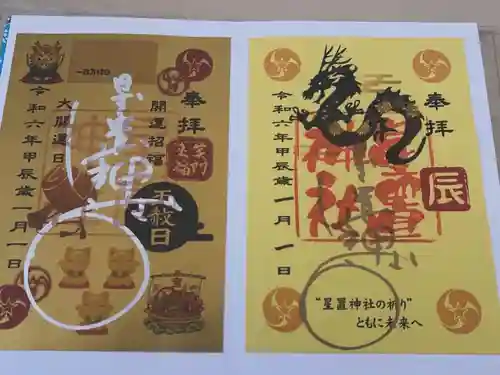 奉拝
開運招福
笑門来福
星置神社
天赦日
大開運日
令和六年甲辰歳一月一日
一粒万倍日
奉拝
辰
星置神社
令和六年甲辰歳一月一日
“星置神社の祈り”
ともに未来へ